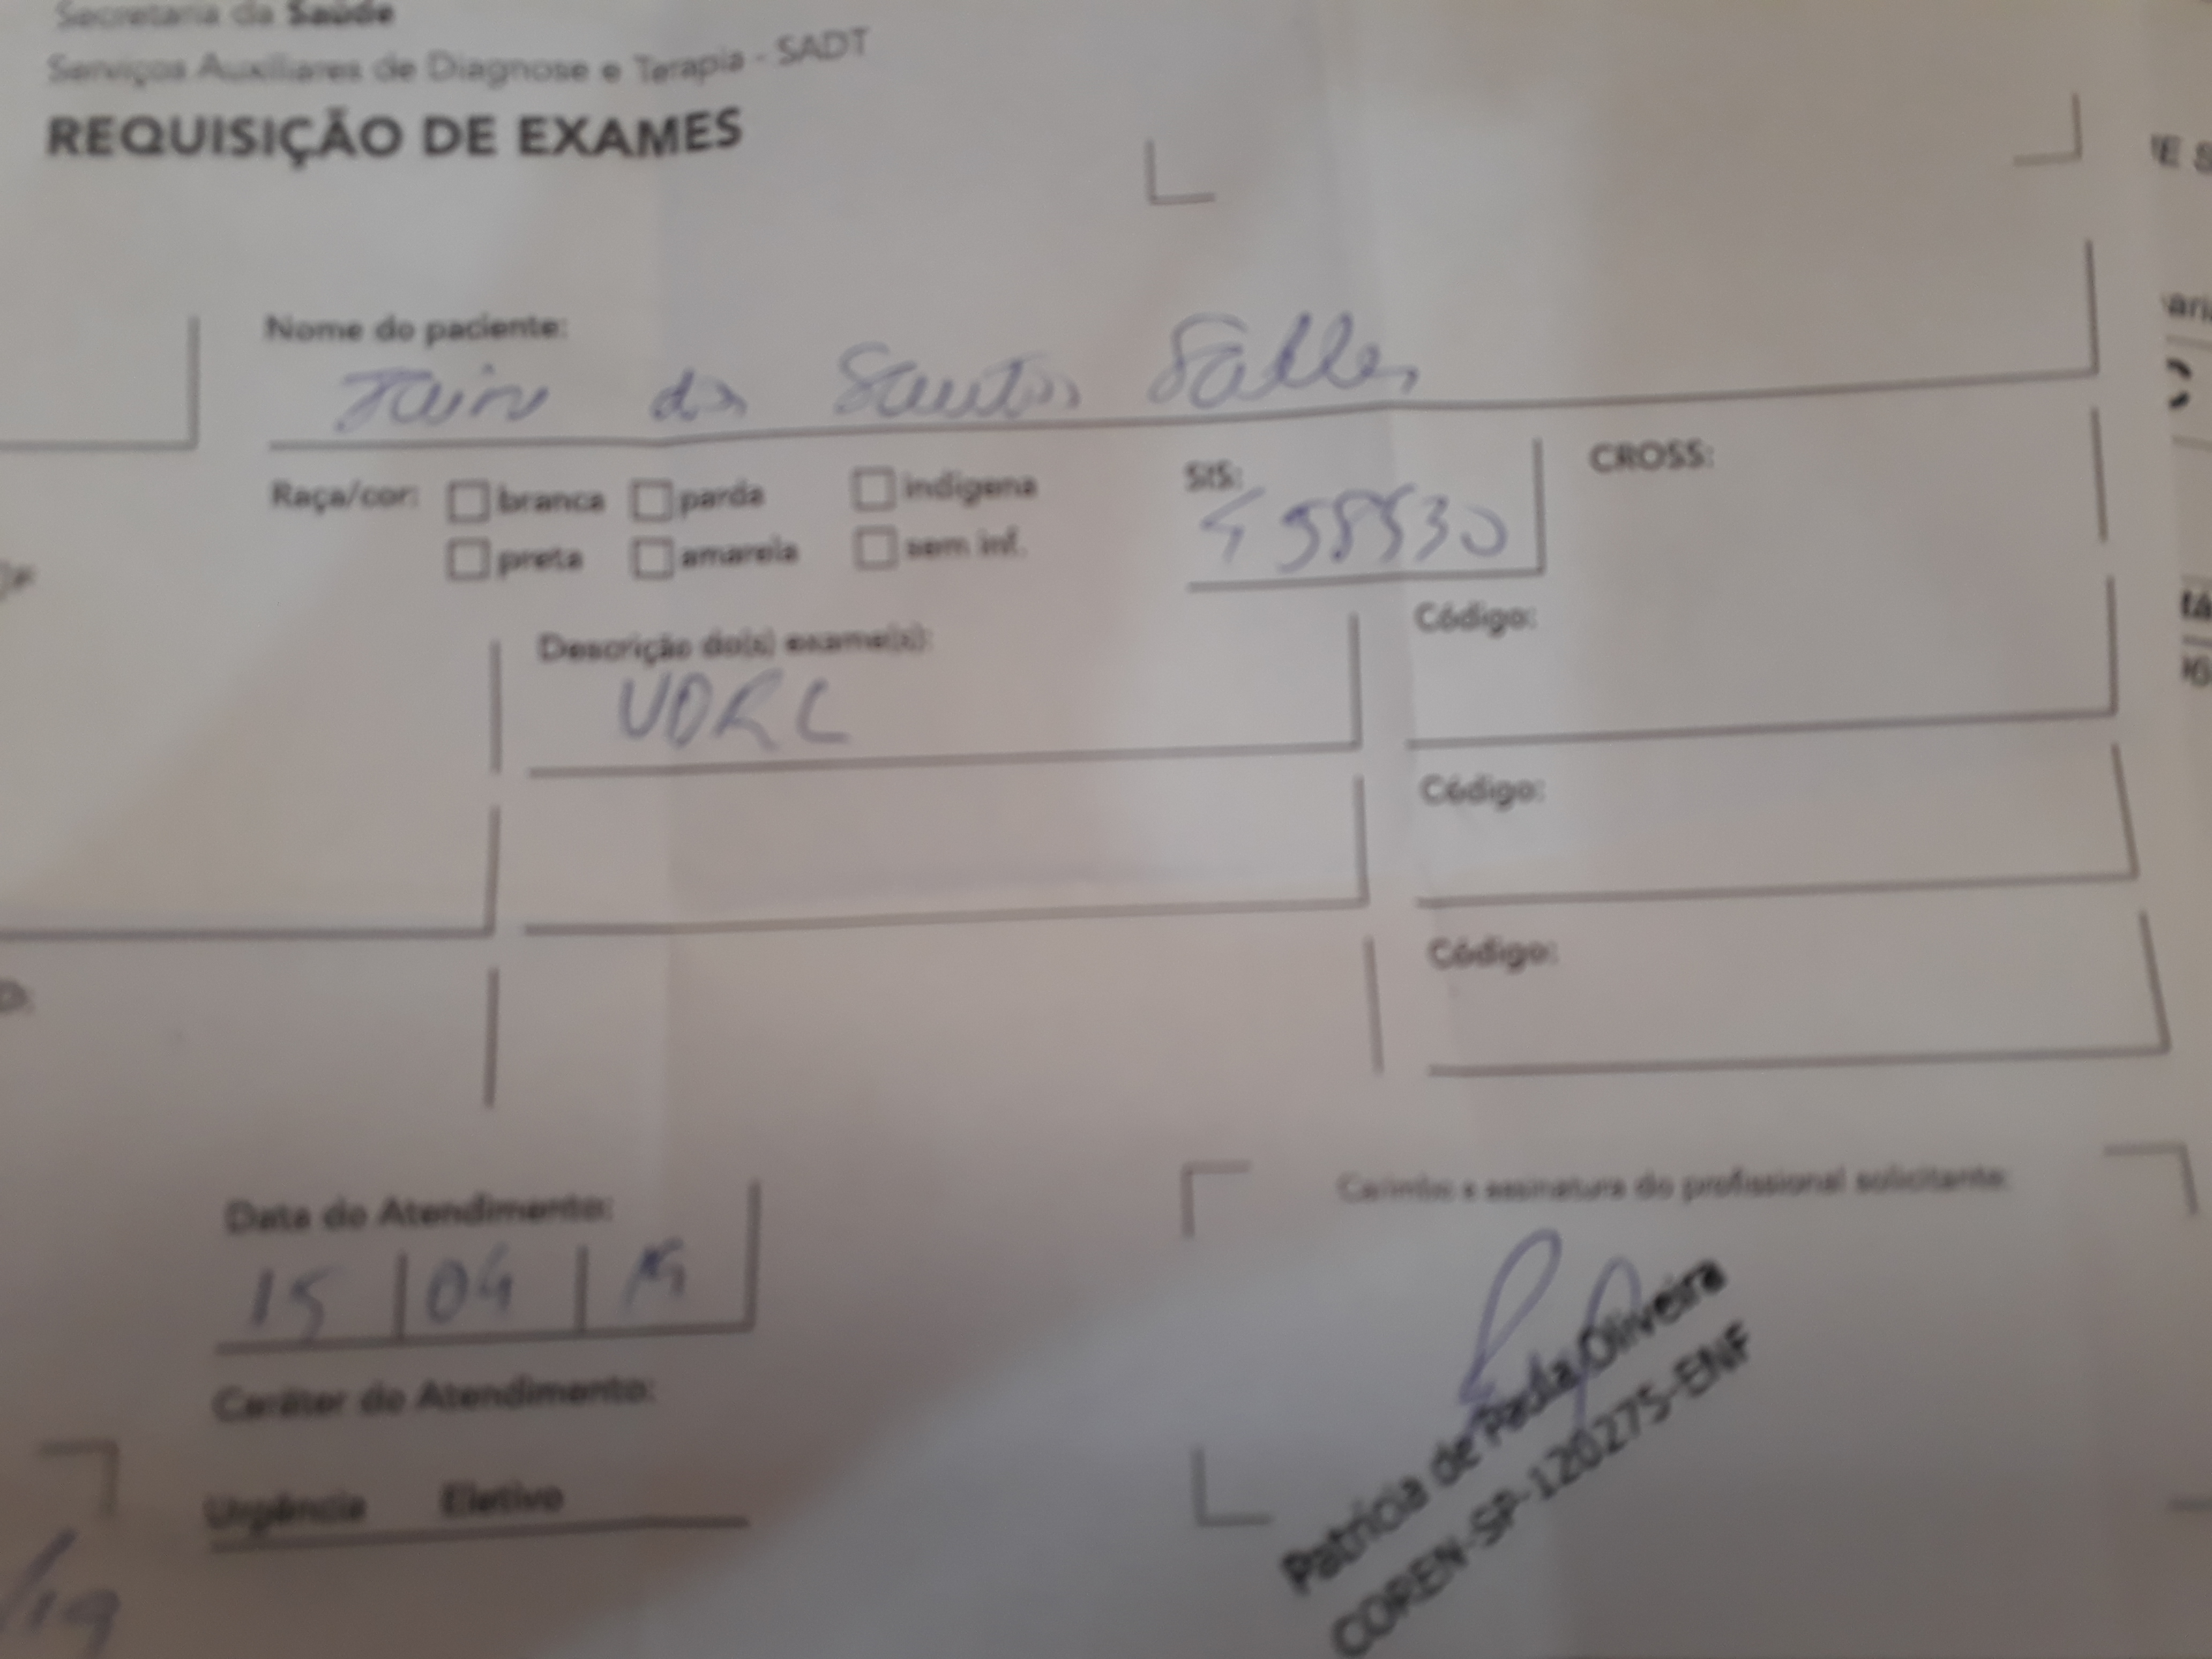 Secretaria da Saúde
Serviços Auxiliares de Diagnose e Terapia - SADT
REQUISIÇÃO DE EXAMES
Nome do paciente:
dos Santos Salles
Raça/cor: branca parda indígena
preta amarela sem inf.
SIS: CROSS:
Descrição do(s) exame(s): Código:
VDRL
Código:
Código:
Data do Atendimento:
15 04 19
Caráter do Atendimento:
Urgência Eletivo
Carimbo e assinatura do profissional solicitante:
Patrícia de Paula Oliveira
COREN-SP-120275-ENF